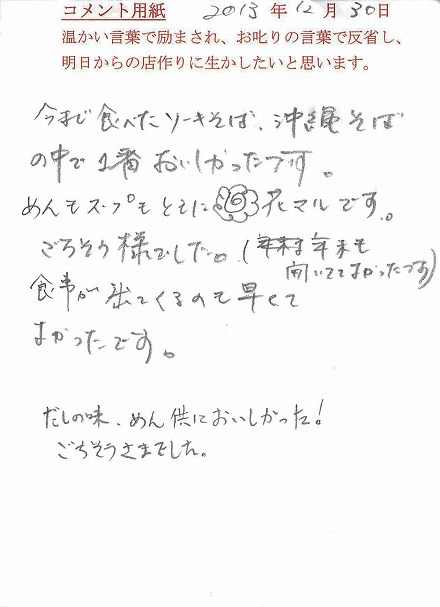 コメント用紙 2013年12月30日
温かい言葉で励まされ、お叱りの言葉で反省し、
明日からの店作りに生かしたいと思います。
今まで食べたソーキそば、沖縄そば
の中で1番おいしかったです。
めんもスープもともに花マルです。
ごちそう様でした。(年末も
開いててよかったです)
食事が出てくるのも早くて
よかったです。
だしの味、めん供においしかった!
ごちそうさまでした。